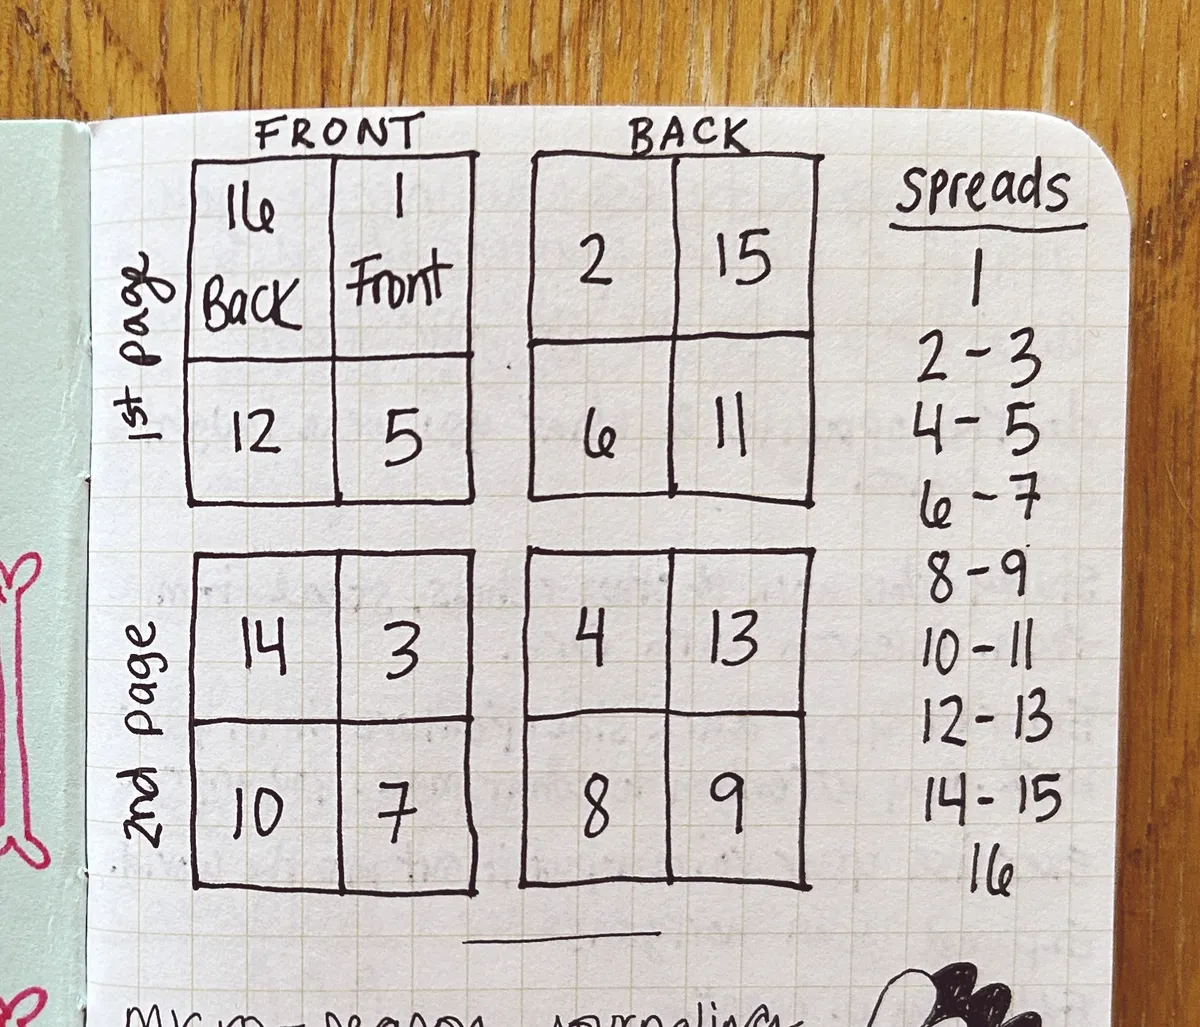 FRONT
BACK
1st page
16 1
Back Front
12 5
2 15
6 11
2nd page
14 3
10 7
4 13
8 9
Spreads
1
2-3
4-5
6-7
8-9
10-11
12-13
14-15
16
journaling